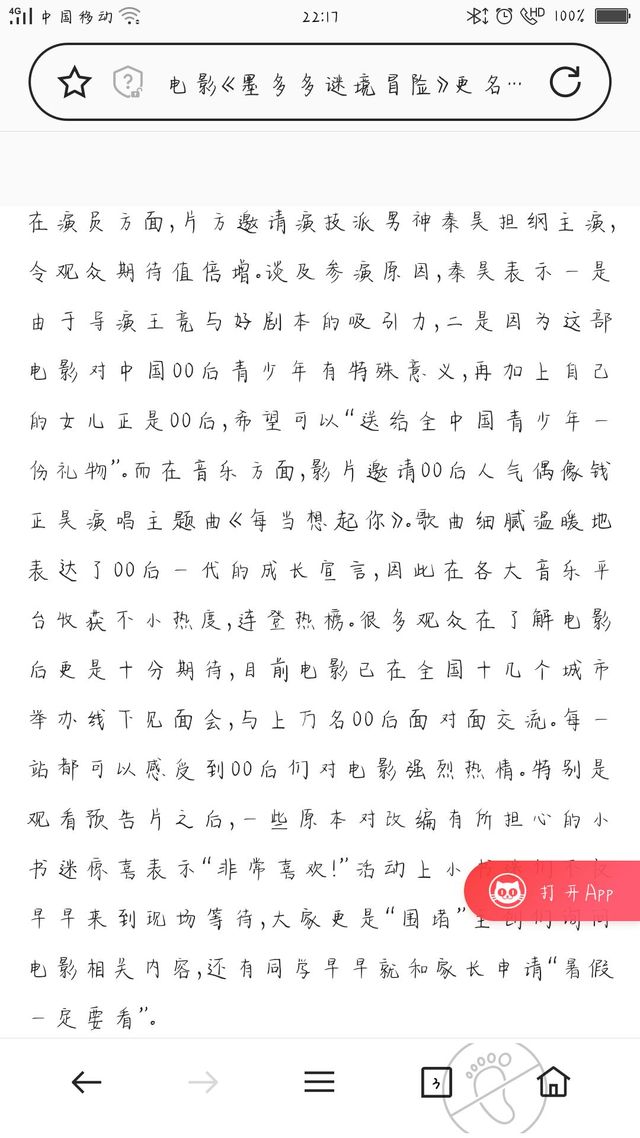 4G 中国移动 22:17 HD 100%
电影《墨多多谜境冒险》更名…
在演员方面,片方邀请演技派男神秦昊担纲主演,
令观众期待值倍增。谈及参演原因,秦昊表示一是
由于导演王竞与好剧本的吸引力,二是因为这部
电影对中国00后青少年有特殊意义,再加上自己
的女儿正是00后,希望可以“送给全中国青少年一
份礼物”。而在音乐方面,影片邀请00后人气偶像钱
正昊演唱主题曲《每当想起你》。歌曲细腻温暖地
表达了00后一代的成长宣言,因此在各大音乐平
台收获不小热度,连登热榜。很多观众在了解电影
后更是十分期待,目前电影已在全国十几个城市
举办线下见面会,与上万名00后面对面交流。每一
站都可以感受到00后们对电影强烈热情。特别是
观看预告片之后,一些原本对改编有所担心的小
书迷惊喜表示“非常喜欢!”活动上小
打开App
早早来到现场等待,大家更是“围堵”主创们询问
电影相关内容,还有同学早早就和家长申请“暑假
一定要看”。
3